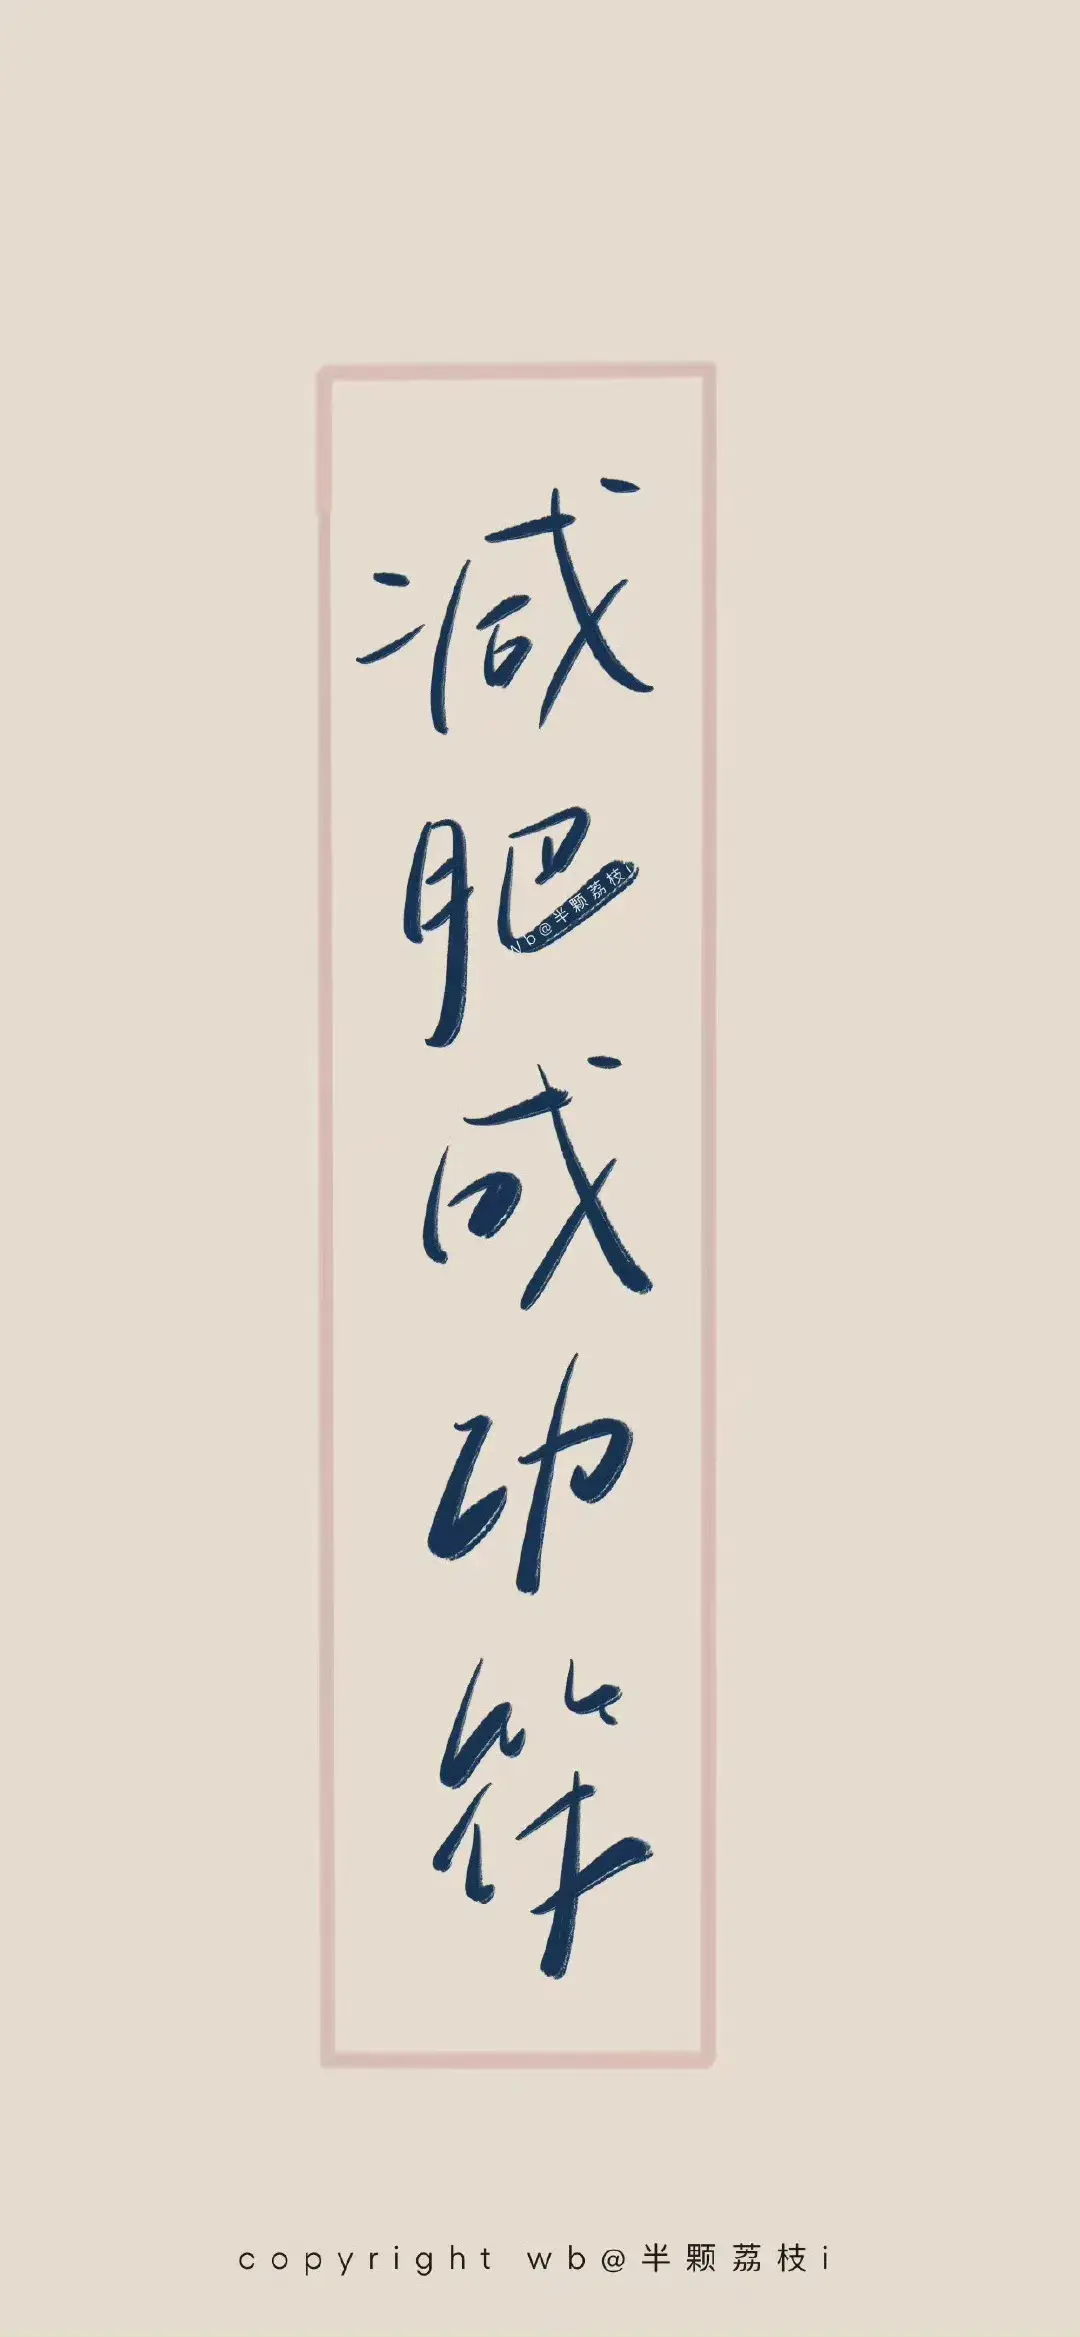 减肥成功符
wb@半颗荔枝i
copyright wb@半颗荔枝i